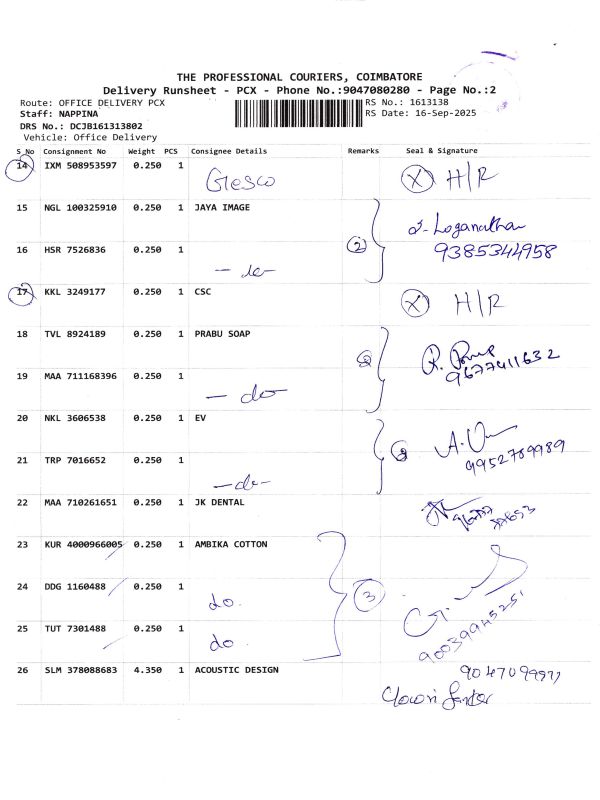 THE PROFESSIONAL COURIERS, COIMBATORE
Delivery Runsheet - PCX - Phone No.:9047080280 - Page No.:2
Route: OFFICE DELIVERY PCX
RS No.: 1613138
Staff: NAPPINA
RS Date: 16-Sep-2025
DRS No.: DCJB161313802
Vehicle: Office Delivery
S_No Consignment No Weight PCS Consignee Details Remarks Seal & Signature
14 IXM 508953597 0.250 1 Gresco X H/R
15 NGL 100325910 0.250 1 JAYA IMAGE Loganathan
16 HSR 7526836 0.250 1 2 9385344958
17 KKL 3249177 0.250 1 CSC X H/R
18 TVL 8924189 0.250 1 PRABU SOAP 2
19 MAA 711168396 0.250 1 - do - 9677411632
20 NKL 3606538 0.250 1 EV 2
21 TRP 7016652 0.250 1 - do - 9952789989
22 MAA 710261651 0.250 1 JK DENTAL
23 KUR 4000966005 0.250 1 AMBIKA COTTON
24 DDG 1160488 0.250 1 do. 3
25 TUT 7301488 0.250 1 do. 90039945251
26 SLM 378088683 4.350 1 ACOUSTIC DESIGN